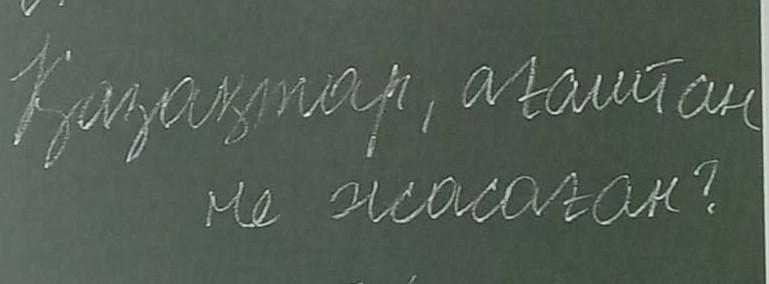 Қазақтар, ағаштан
не жасаған?